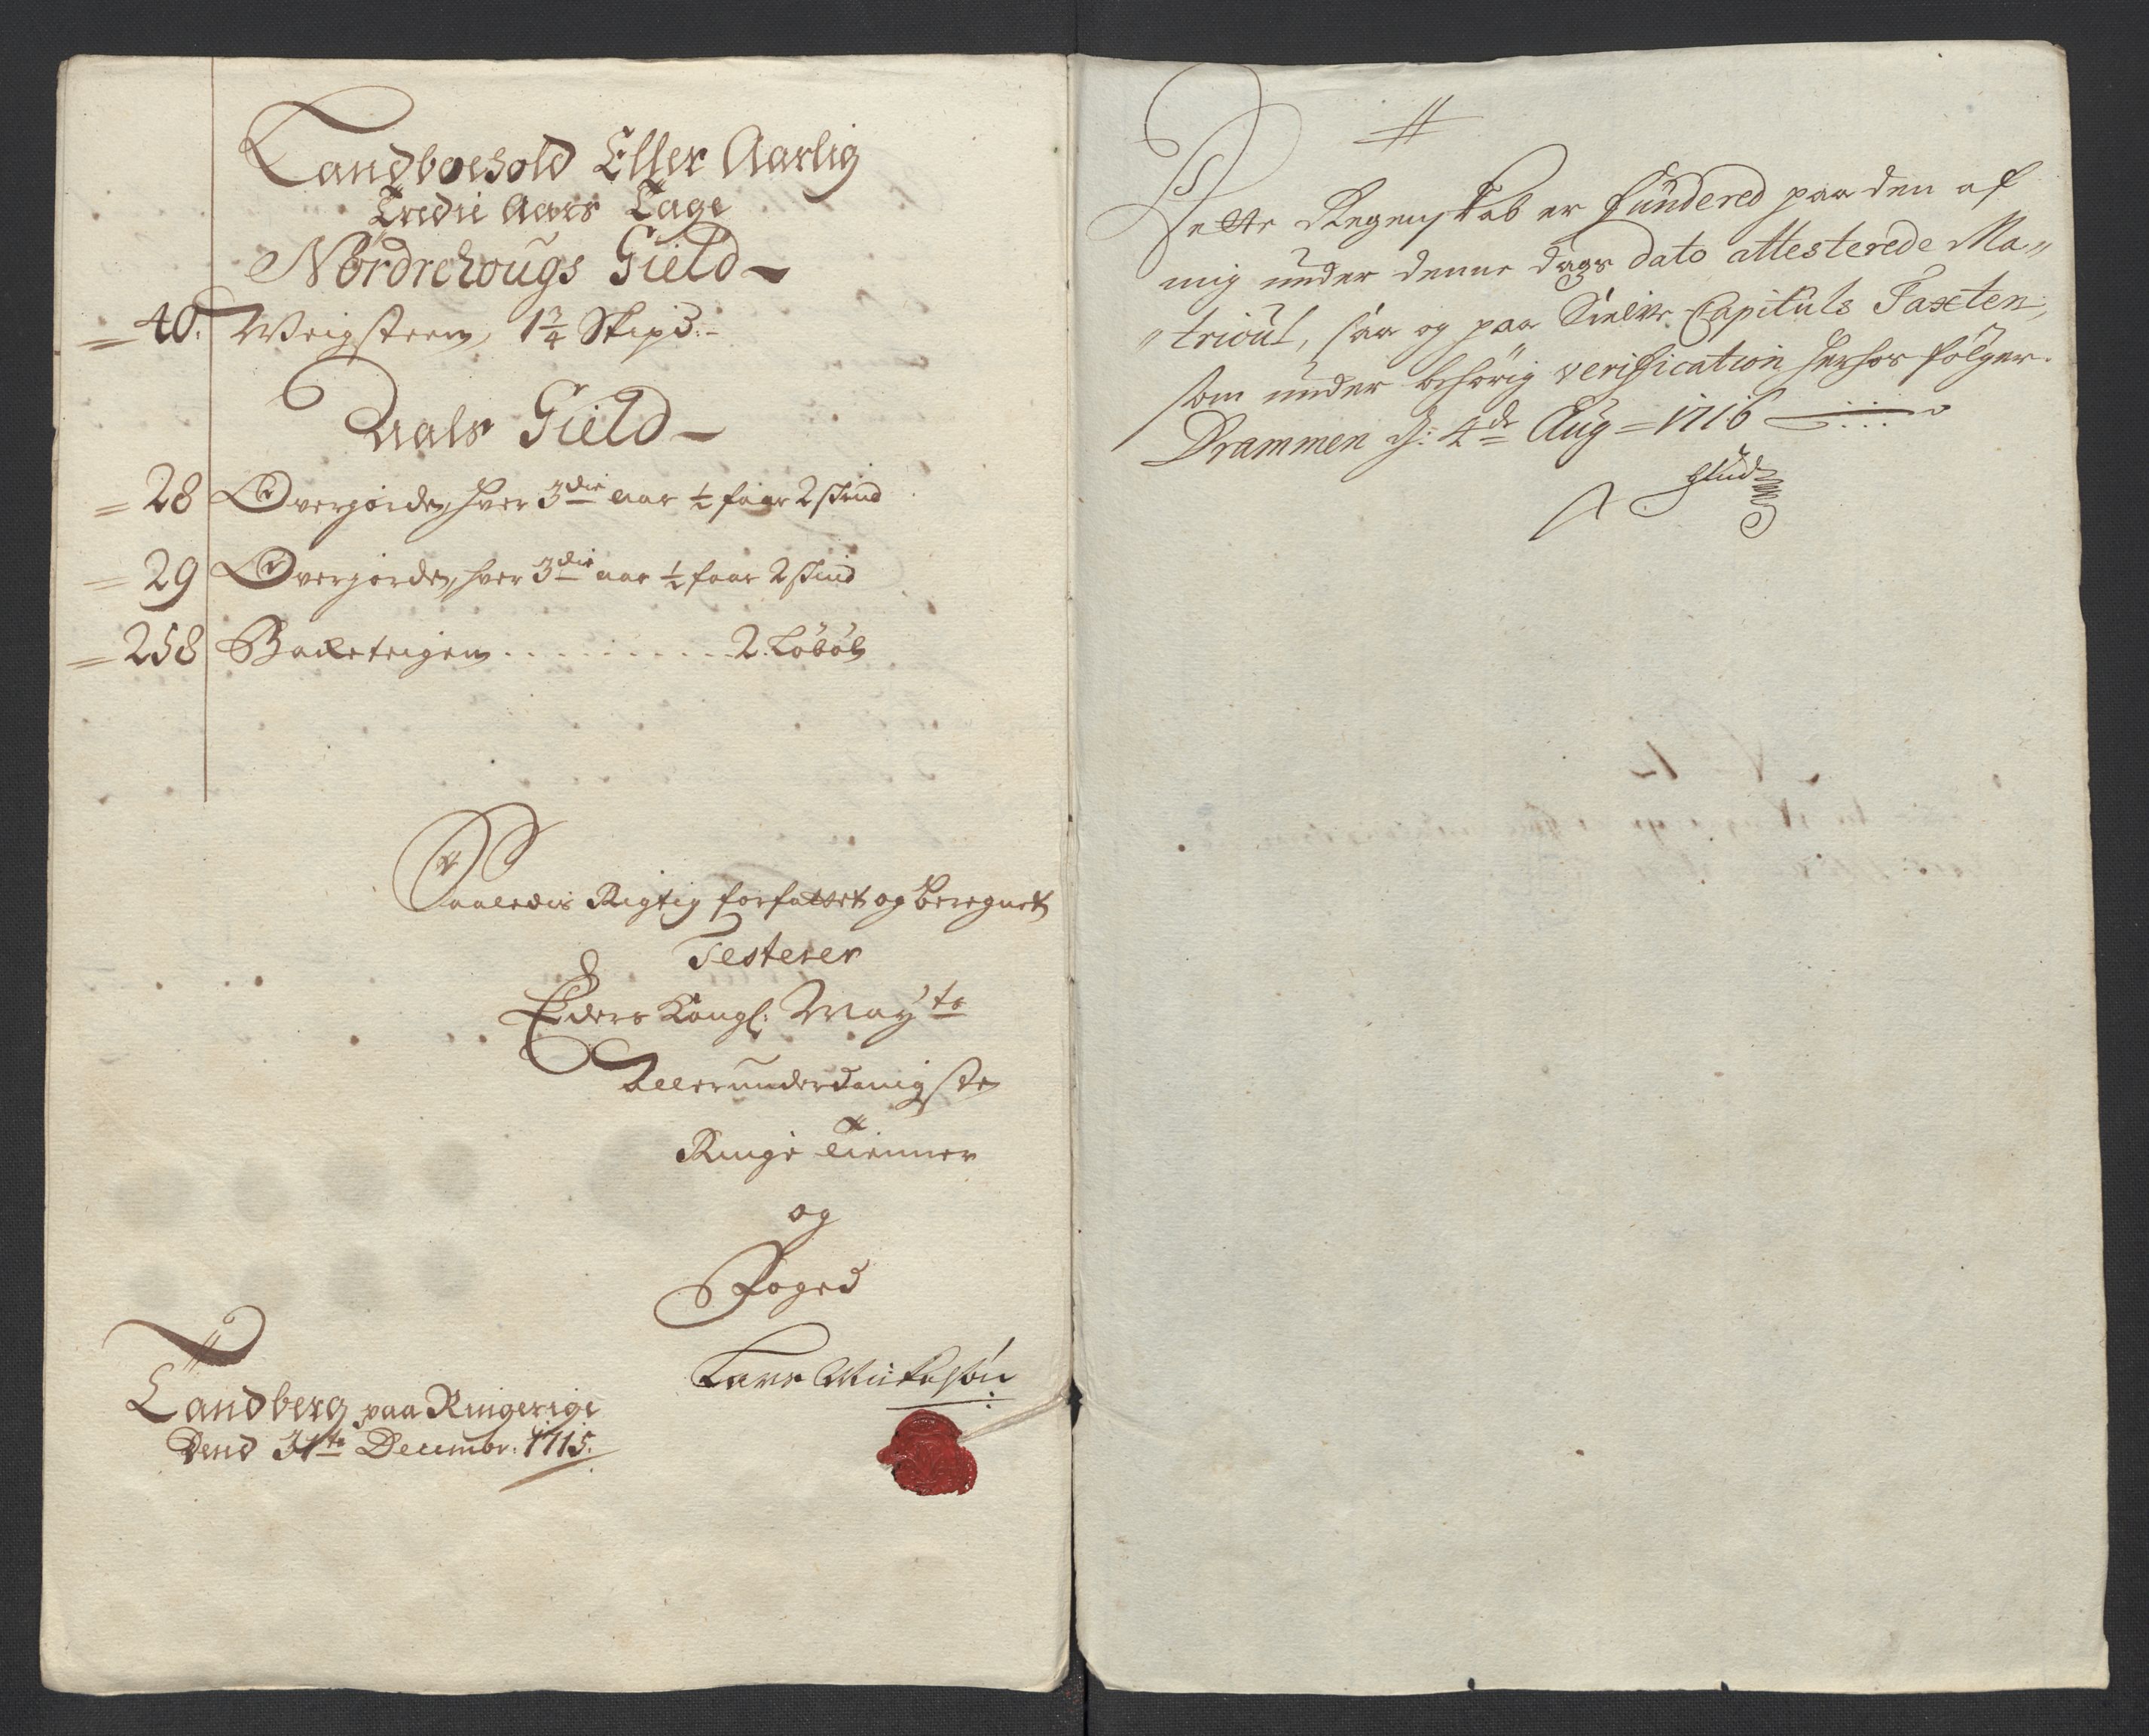 Landboehold Eller Aarlig
Tredie Aars Tage
Nordrehougs Gield
40. Weigsteen, 1 3/4 Skipd:
Aals Gield
28 Overjorde, hver 3die aar 1/2 faar 2 skind
29 Overjorde, hver 3die aar 1/2 faar 2 skind
258 Backeteigen . . . . . . . . . 2. Løbøl
Saaledis Rigtig forfattet og beregnet
Testerer
Eders Kongl: May te
Allerunderdanigste
Ringe Tienner
og
Foged
Lars
Landberg paa Ringerige
Dend 31te Decembr: 1715.
Dette Regenskab er fundered paa den af
mig under denne dags dato attesterede Ma„
„tricul, saa og paa Capituls Taxten,
som under behørig verification herhos følger.
Drammen d: 4de Aug = 1716
Glud